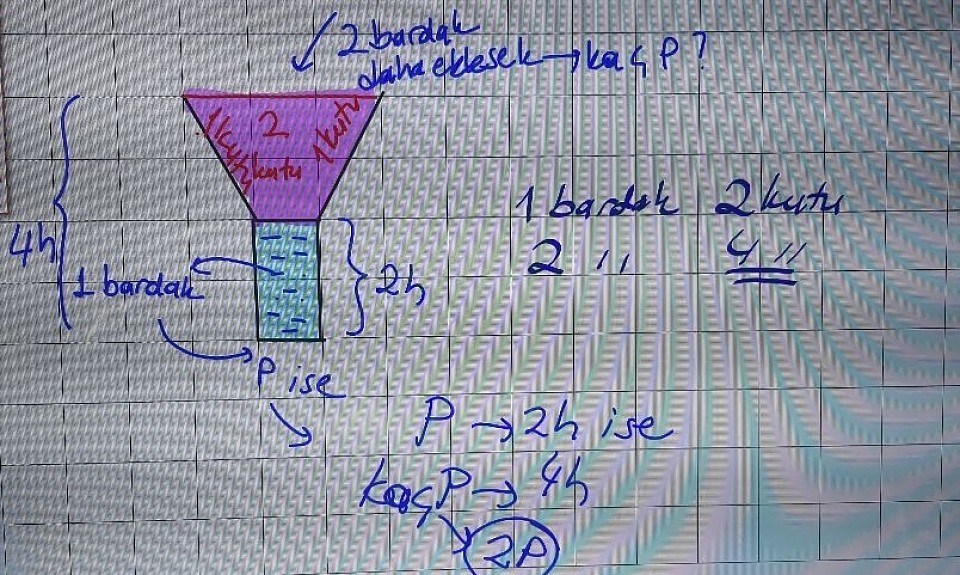 2 bardak
daha eklesek → kaç P ?
1 kutu 2 kutu 1 kutu
4h
1 bardak
2h
1 bardak 2 kutu
2 " 4 "
P ise
P → 2h ise
kaç P → 4h
2P